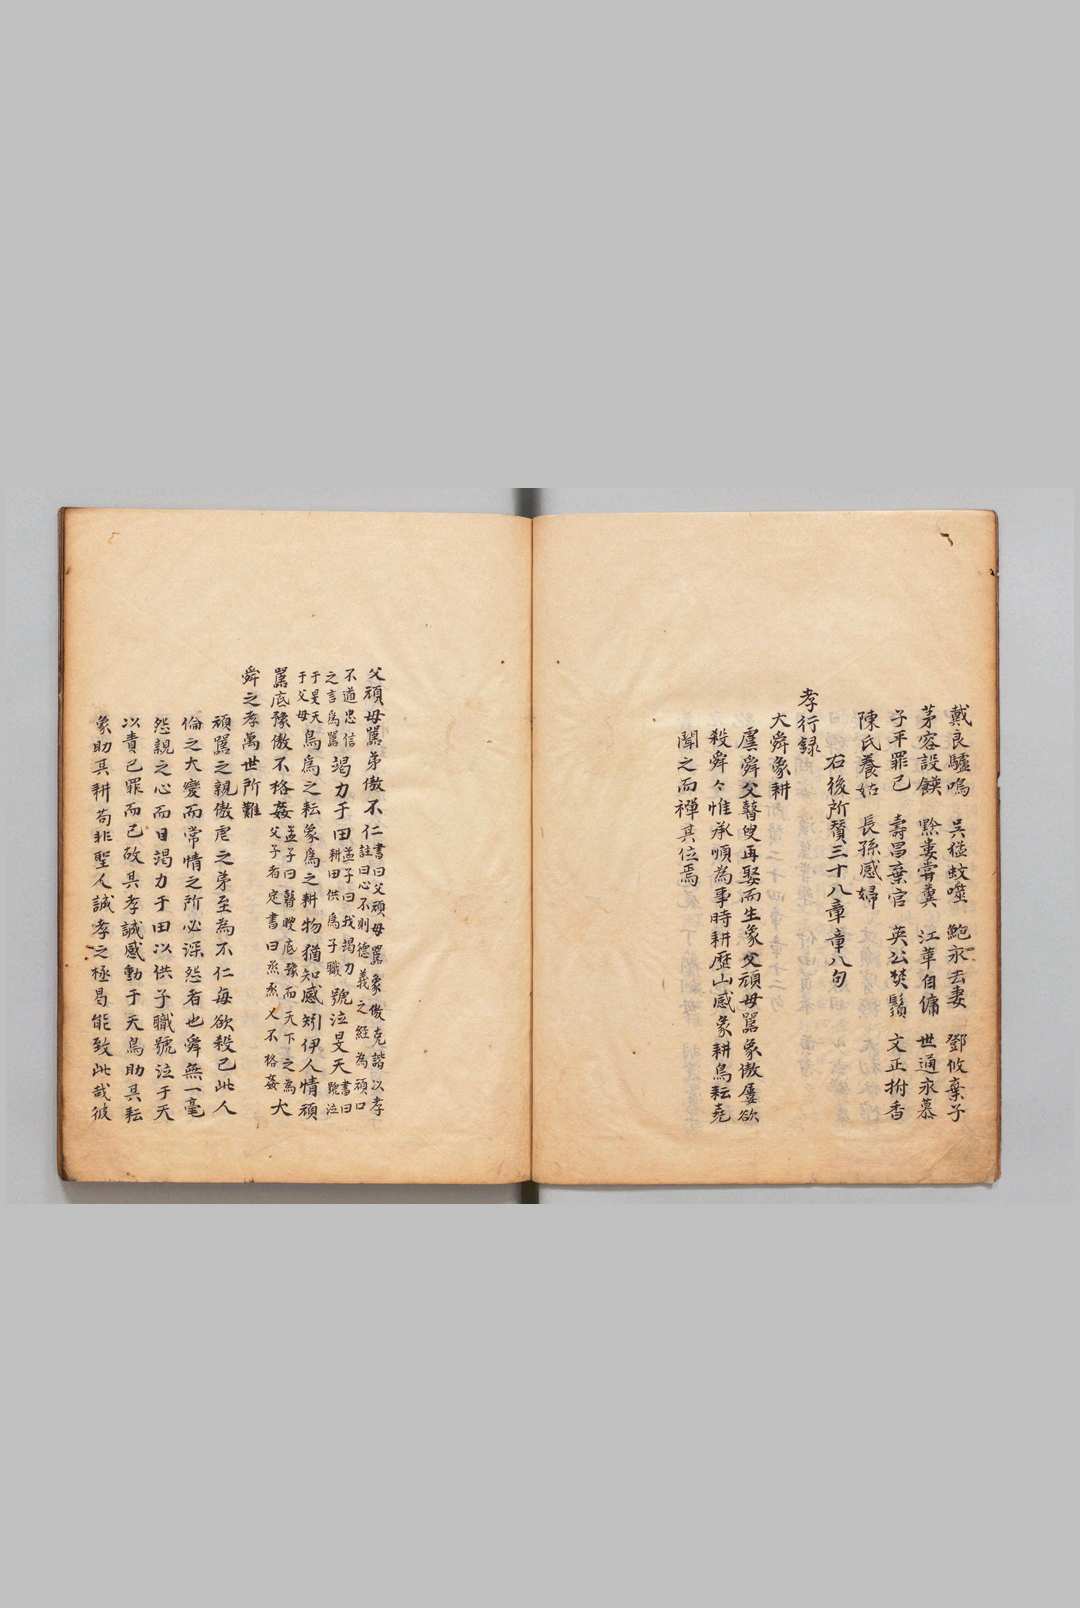 戴良驢鳴　吳猛蚊噬　鮑永去妻　鄧攸棄子
茅容設饌　黔婁嘗糞　江革自傭　世通永慕
子平罪己　壽昌棄官　英公焚鬚　文正拊香
陳氏養姑　長孫感婦
右後所贊三十八章章八句
孝行録
大舜象耕
虞舜父瞽叟再娶而生象父頑母嚚象傲屢欲
殺舜々惟承順為事時耕歷山感象耕鳥耘堯
聞之而禪其位焉
父頑母嚚弟傲不仁書曰父頑母嚚象傲克諧以孝
註曰心不則德義之經為頑口
不道忠信
之言爲嚚竭力于田孟子曰我竭力
耕田供爲子職號泣旻天書曰
號泣
于旻天
于父母鳥爲之耘象爲之耕物猶知感矧伊人情頑
嚚底豫傲不格姦孟子曰瞽瞍底豫而天下之為
父子者定書曰烝烝乂不格姦大
舜之孝萬世所難
頑嚚之親傲虐之弟至為不仁每欲殺己此人
倫之大變而常情之所必深怨者也舜無一毫
怨親之心而日竭力于田以供子職號泣于天
以責己罪而已故其孝誠感動于天鳥助其耘
象助其耕苟非聖人誠孝之極曷能致此哉彼